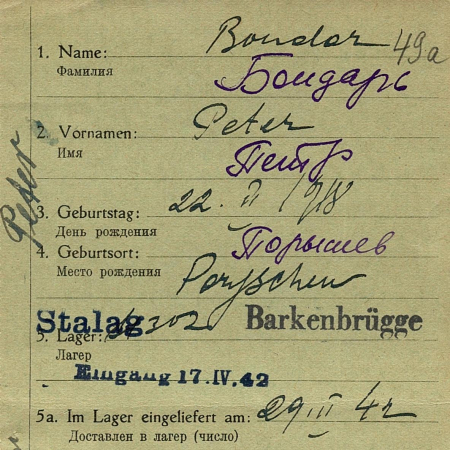 1. Name: Bondar 49a
Фамилия Бондарь
2. Vornamen: Peter
Имя Петр
Peter
3. Geburtstag: 22. II 1918
День рождения
4. Geburtsort: Порышев
Место рождения Poryschew
Stalag 302 Barkenbrügge
5. Lager:
Лагер
Eingang 17.IV.42
5a. Im Lager eingeliefert am: 29. III 42
Доставлен в лагер (число)